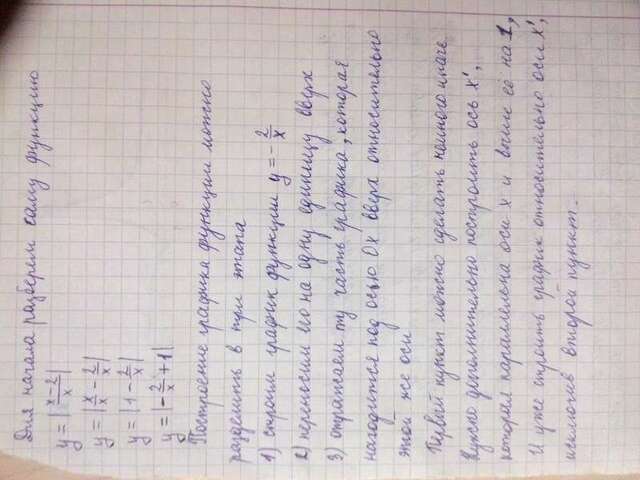 Для начала разберем саму функцию
y = |x-2/x|
y = |x/x - 2/x|
y = |1 - 2/x|
y = |-2/x + 1|
Построение графика функции можно
разделить в три этапа
1) строим график функции y = - 2/x
2) переносим его на одну единицу вверх
3) отражаем ту часть графика, которая
находится под осью Ox вверх относительно
этой же оси
Первый пункт можно сделать немного иначе
Нужно дополнительно построить ось x',
которая параллельна оси x и выше её на 1,
И уже строить график относительно оси x',
исключив второй пункт.